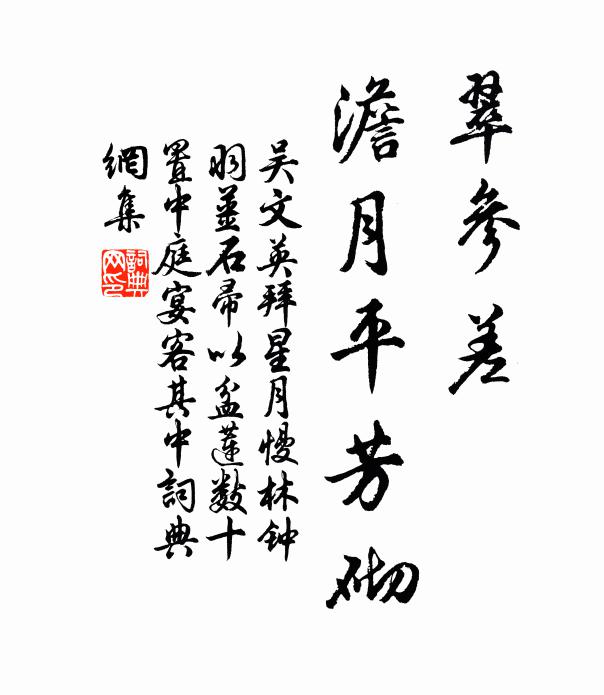 翠參差
澹月平芳砌
吴文英拜星月慢林钟
羽薑石帚以盆蓮数十
置中庭宴客其中詞典
網集
詞典網印